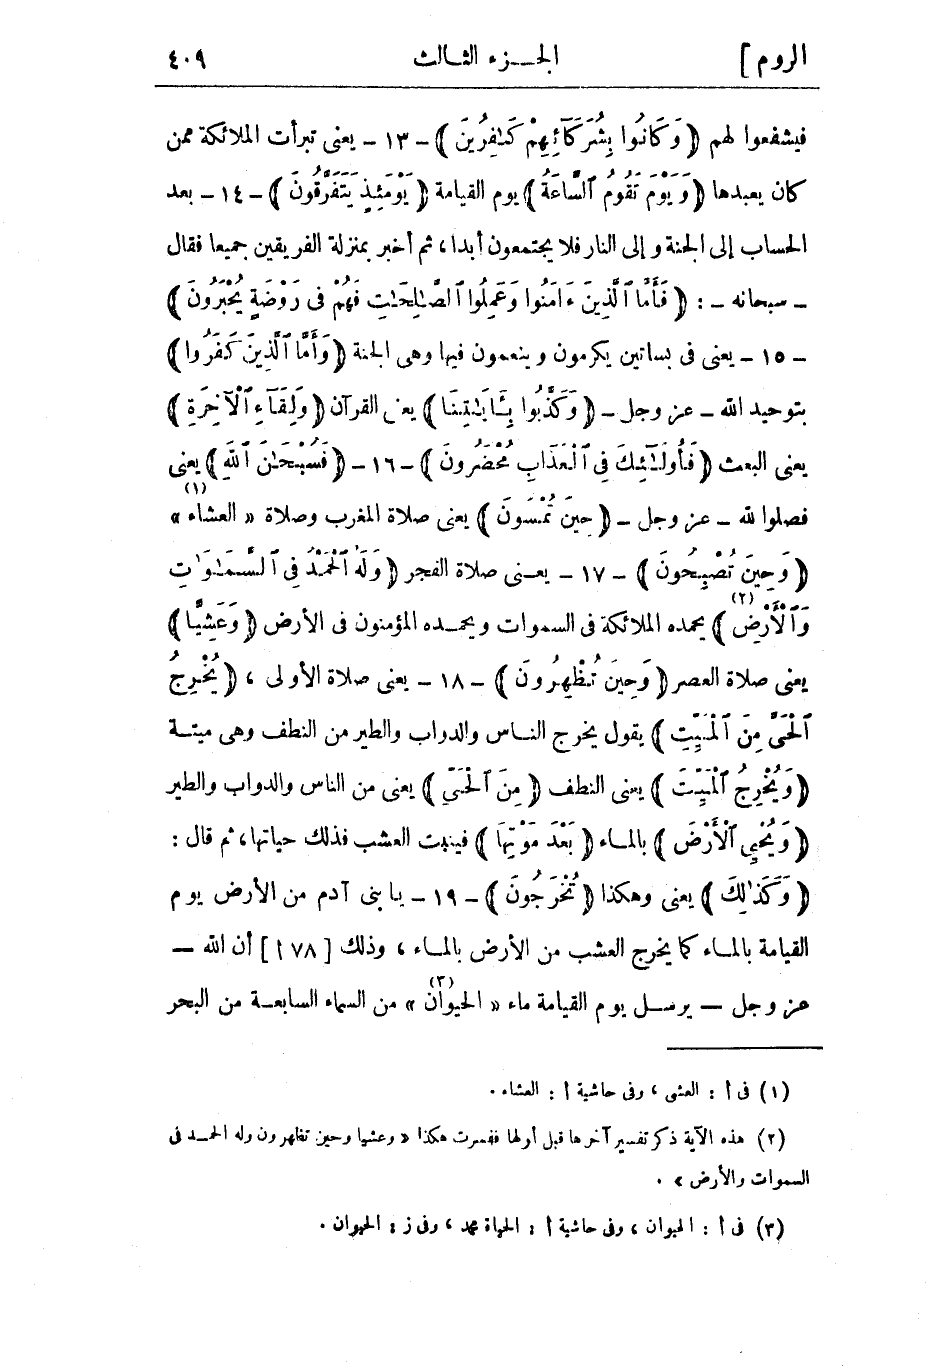 الروم] الجـــزء الثـالث ٤٠٩
فيشفعوا لهم ﴿ وَكَانُوا بِشُرَكَآئِهِمْ كَـٰفِرِينَ ﴾ - ١٣ - يعنى تبرأت الملائكة ممن
كان يعبدها ﴿ وَيَوْمَ تَقُومُ ٱلسَّاعَةُ ﴾ يوم القيامة ﴿ يَوْمَئِذٍ يَتَفَرَّقُونَ ﴾ - ١٤ - بعد
الحساب إلى الجنة وإلى النار فلا يجتمعون أبدا ، ثم أخبر بمنزلة الفريقين جميعا فقال
- سبحانه - : ﴿ فَأَمَّا ٱلَّذِينَ ءَامَنُوا وَعَمِلُوا ٱلصَّـٰلِحَـٰتِ فَهُمْ فِى رَوْضَةٍ يُحْبَرُونَ ﴾
- ١٥ - يعنى فى بساتين يكرمون وينعمون فيها وهى الجنة ﴿ وَأَمَّا ٱلَّذِينَ كَفَرُوا ﴾
بتوحيد الله - عز وجل - ﴿ وَكَذَّبُوا بِـَٔايَـٰتِنَا ﴾ يعنى القرآن ﴿ وَلِقَآءِ ٱلْآخِرَةِ ﴾
يعنى البعث ﴿ فَأُولَـٰٓئِكَ فِى ٱلْعَذَابِ مُحْضَرُونَ ﴾ - ١٦ - ﴿ فَسُبْحَـٰنَ ٱللَّهِ ﴾ يعنى
فصلوا لله - عز وجل - ﴿ حِينَ تُمْسُونَ ﴾ يعنى صلاة المغرب وصلاة « العشاء (١) »
﴿ وَحِينَ تُصْبِحُونَ ﴾ - ١٧ - يعـنى صلاة الفجر ﴿ وَلَهُ ٱلْحَمْدُ فِى ٱلسَّمَـٰوَٰتِ
وَٱلْأَرْضِ (٢) ﴾ يحمده الملائكة فى السموات ويحمـده المؤمنون فى الأرض ﴿ وَعَشِيًّا ﴾
يعنى صلاة العصر ﴿ وَحِينَ تُظْهِرُونَ ﴾ - ١٨ - يعنى صلاة الأولى ، ﴿ يُخْرِجُ
ٱلْحَىَّ مِنَ ٱلْمَيِّتِ ﴾ يقول يخرج النـاس والدواب والطير من النطف وهى ميتـة
﴿ وَيُخْرِجُ ٱلْمَيِّتَ ﴾ يعنى النطف ﴿ مِنَ ٱلْحَىِّ ﴾ يعنى من الناس والدواب والطير
﴿ وَيُحْيِى ٱلْأَرْضَ ﴾ بالمـاء ﴿ بَعْدَ مَوْتِهَا ﴾ فينبت العشب فذلك حياتها، ثم قال :
﴿ وَكَذَٰلِكَ ﴾ يعنى وهكذا ﴿ تُخْرَجُونَ ﴾ - ١٩ - يا بنى آدم من الأرض يوم
القيامة بالمـاء كما يخرج العشب من الأرض بالمـاء ، وذلك [ ٧٨ أ ] أن الله —
عز وجل — يرسـل يوم القيامة ماء « الحيوان (٣) » من السماء السابعـة من البحر
(١) فى أ : العشى ، وفى حاشية أ : العشاء .
(٢) هذه الآية ذكر تفسير آخرها قبل أولها ففسرت هكذا « وعشيا وحين تظهرون وله الحمـد فى
السموات والأرض » .
(٣) فى أ : الحيوان ، وفى حاشية أ : الحياة محمد ، وفى ز : الحيوان .